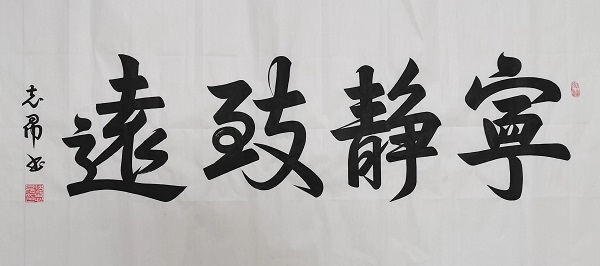 寧靜致遠
志昂书